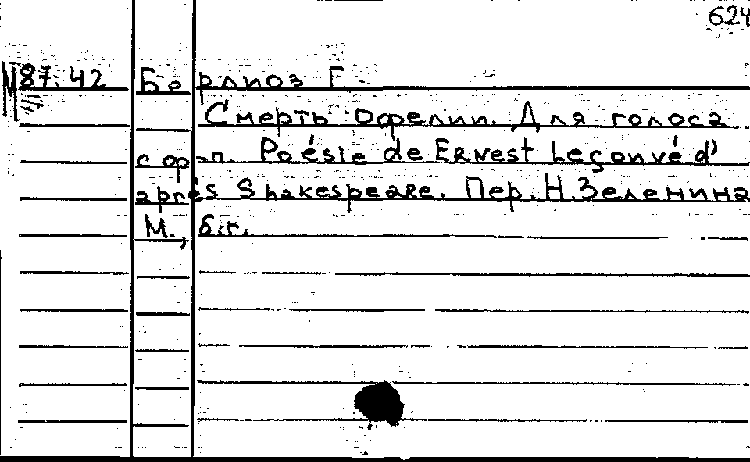 624
М 87.42 Берлиоз Г.
Смерть Офелии. Для голоса
с ф-п. Poésie de Ernest Legouvé d'
après Shakespeare. Пер. Н. Зеленина
М., б.г.